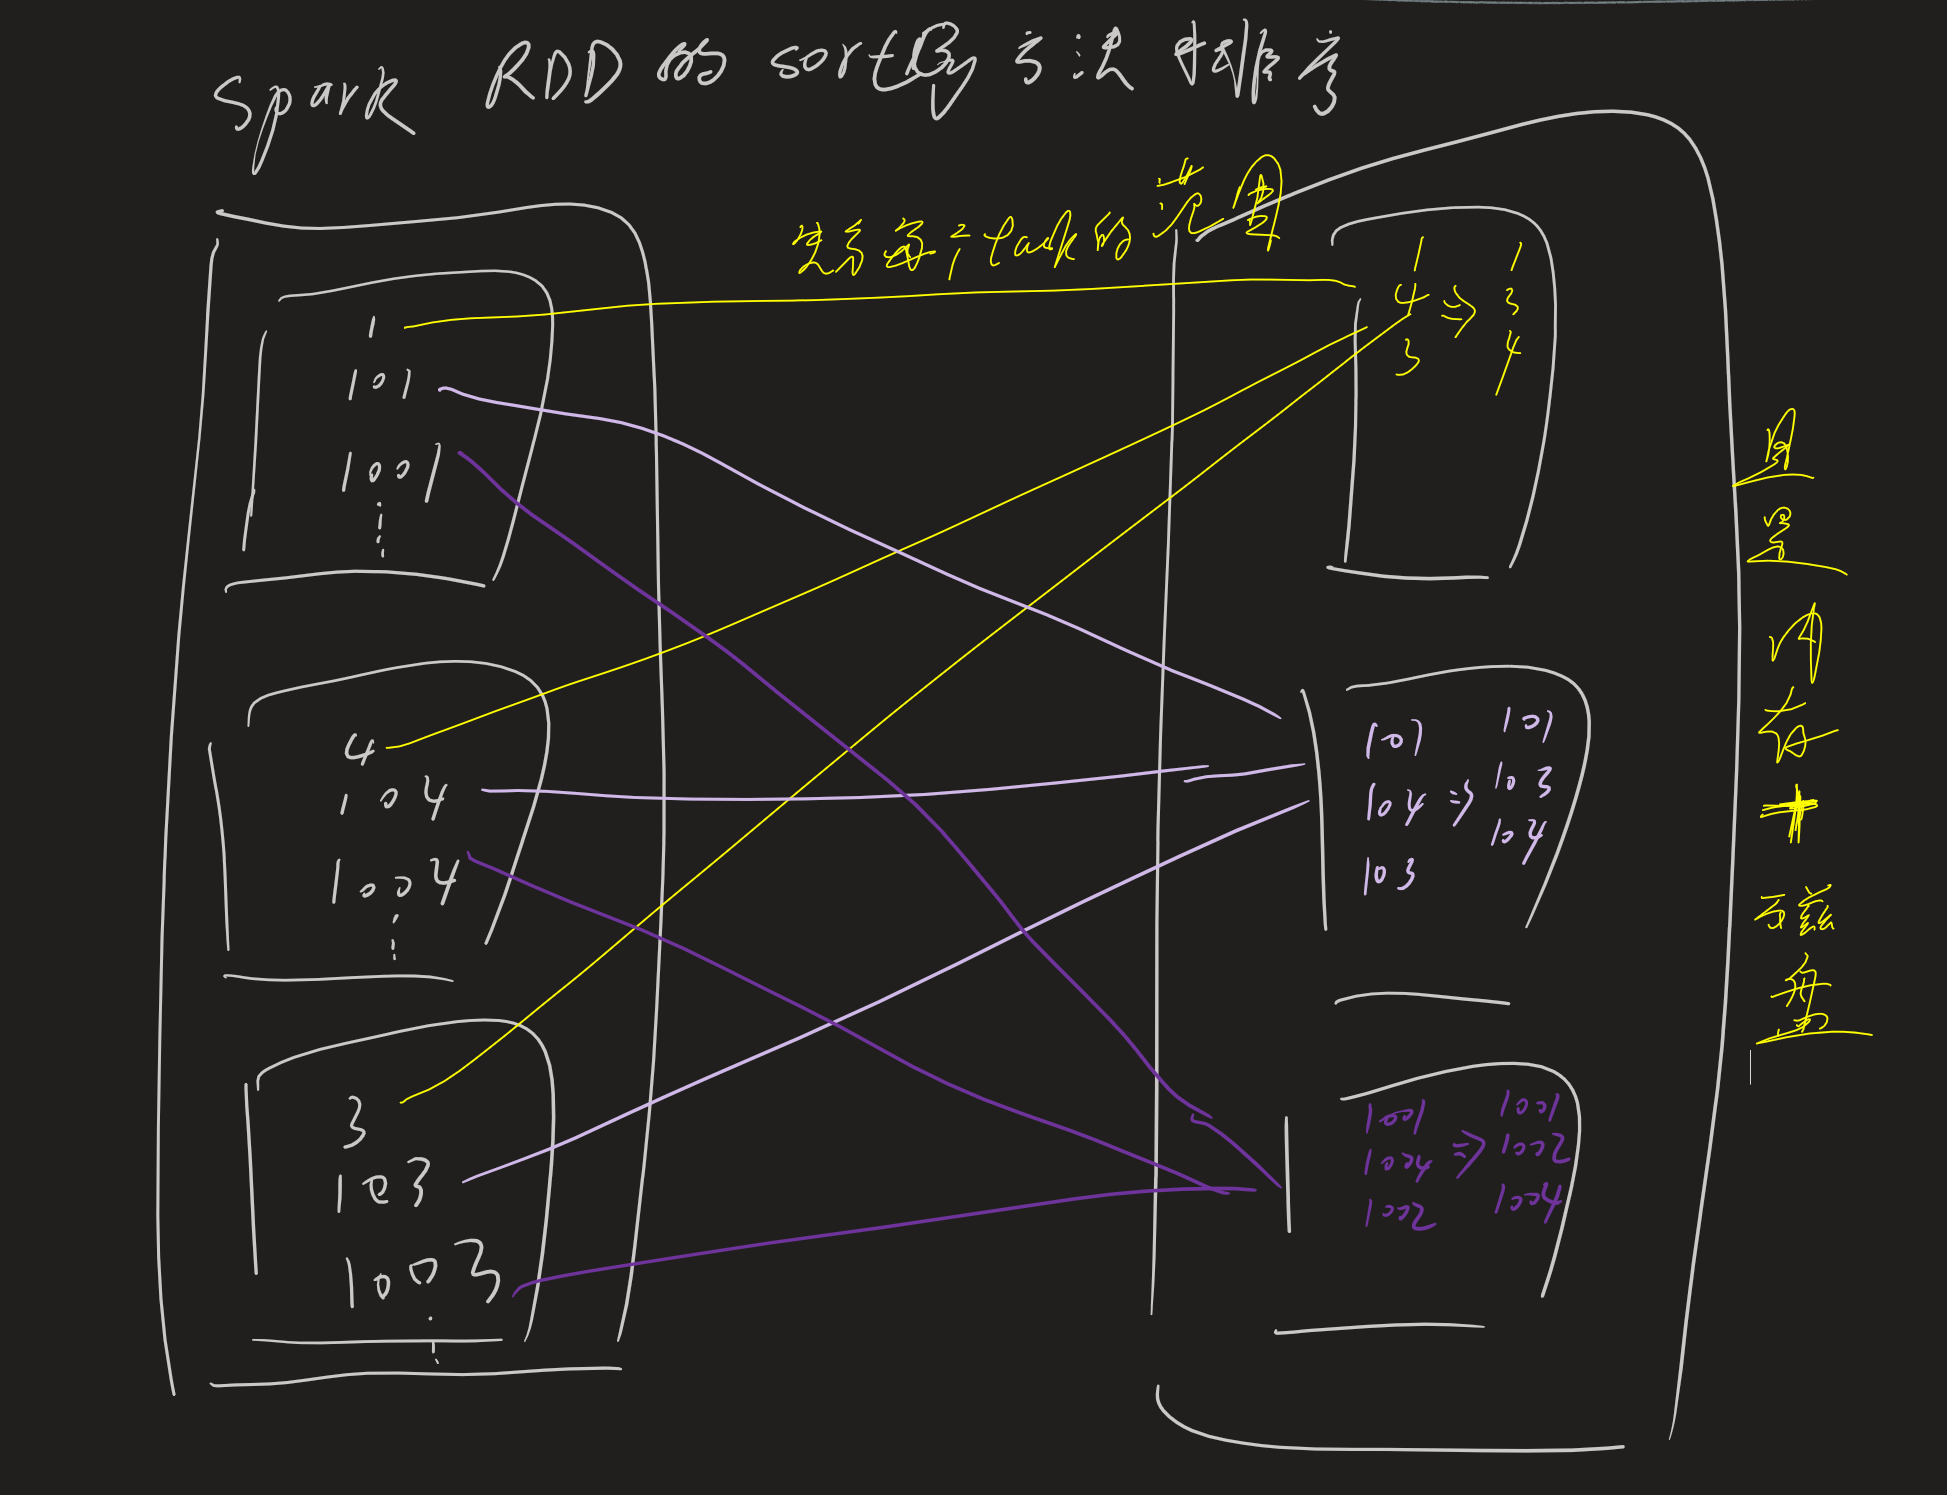 Spark RDD的 sortBy方法 排序
每个task的范围
1
101
1001
4
104
1004
3
103
1003
1 1
4 => 3
3 4
101 101
104 => 103
103 104
1001 1001
1004 => 1002
1002 1004
且
是
内
存
+
磁
盘